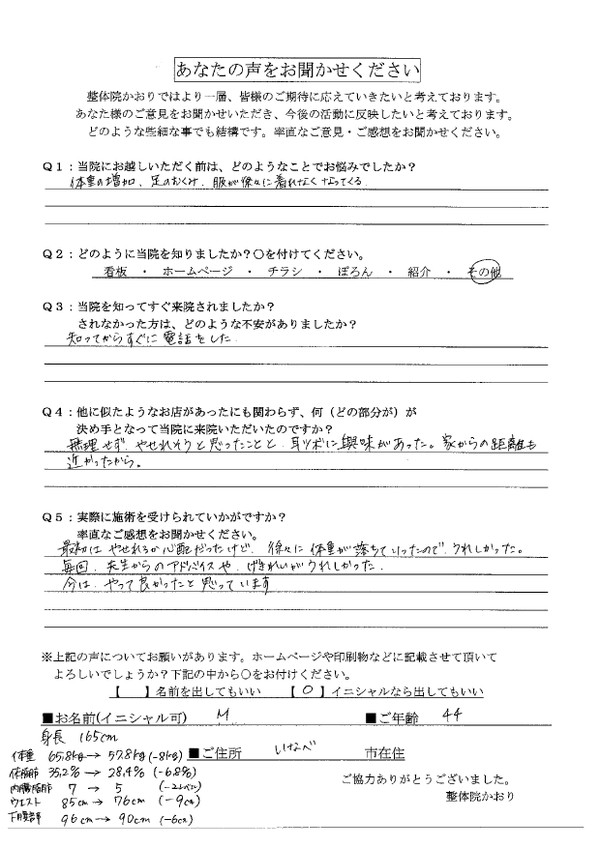 あなたの声をお聞かせください
整体院かおりではより一層、皆様のご期待に応えていきたいと考えております。
あなた様のご意見をお聞かせいただき、今後の活動に反映したいと考えております。
どのような些細な事でも結構です。率直なご意見・ご感想をお聞かせください。
Q1：当院にお越しいただく前は、どのようなことでお悩みでしたか？
体重の増加、足のむくみ、服が徐々に着れなくなってくる
Q2：どのように当院を知りましたか？〇を付けてください。
看板 ・ ホームページ ・ チラシ ・ ぽろん ・ 紹介 ・ その他
Q3：当院を知ってすぐ来院されましたか？
されなかった方は、どのような不安がありましたか？
知ってからすぐに電話をした
Q4：他に似たようなお店があったにも関わらず、何（どの部分が）が
決め手となって当院に来院いただいたのですか？
無理せず やせれそうと思ったことと、耳ツボに興味があった。家からの距離も
近かったから。
Q5：実際に施術を受けられていかがですか？
率直なご感想をお聞かせください。
最初は やせれるか心配だったけど、徐々に体重が落ちていったので、うれしかった。
毎回、先生からのアドバイスや、げきれいがうれしかった。
今は、やって良かったと思っています
※上記の声についてお願いがあります。ホームページや印刷物などに記載させて頂いて
よろしいでしょうか？下記の中から〇をお付けください。
【　】名前を出してもいい 【〇】イニシャルなら出してもいい
■お名前(イニシャル可) M ■ご年齢 44
身長 165cm
■ご住所 いなべ 市在住
体重 65.8kg→57.8kg(-8kg)
体脂肪 35.2%→28.4%(-6.8%)
内臓脂肪 7→5
ウエスト 85cm→76cm(-9cm)
下腹部 96cm→90cm(-6cm)
ご協力ありがとうございました。
整体院かおり